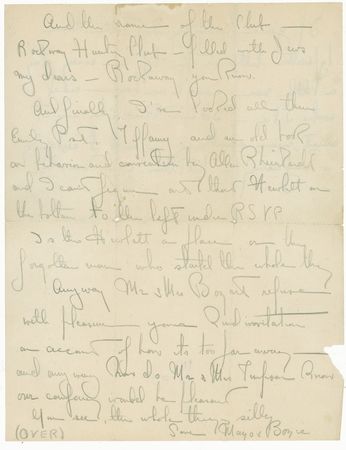 And the name of the Club —
Rockaway Hunting Club — filled with Jews
my dears — Rockaway you know.
And finally I've looked all thru
Emily Post, Tiffany and an old book
on behavior and convention by
and I can't figure out that Hewlett on
the bottom to the left under RSVP
Is this Hewlett a place or the
forgotten man who started the whole thing
Anyway Mr & Mrs Boyce refuse
with pleasure your kind invitation
on account of how its too far away —
and anyway how do Mr & Mrs Know
our company would be pleasant
You see, the whole thing silly
(OVER) Mayor Boyce